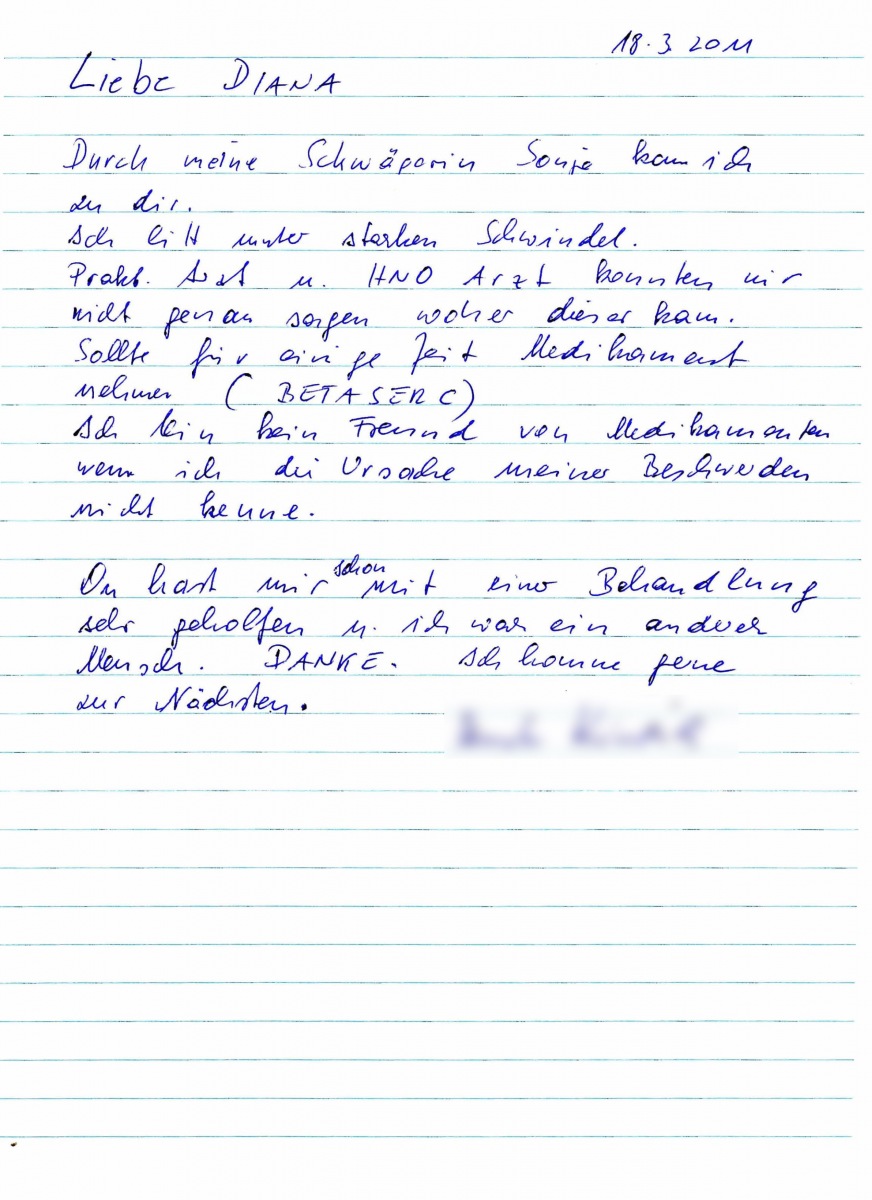 18.3 2011
Liebe DIANA
Durch meine Schwägerin Sonja kam ich
zu dir.
Ich litt unter starken Schwindel.
Prakt. Arzt u. HNO Arzt konnten mir
nicht genau sagen woher dieser kam.
Sollte für einige Zeit Medikament
nehmen (BETASERC)
Ich bin kein Freund von Medikamenten
wenn ich die Ursache meiner Beschwerden
nicht kenne.
Du hast mir schon mit einer Behandlung
sehr geholfen u. ich war ein anderer
Mensch. DANKE. Ich komme gerne
zur Nächsten.